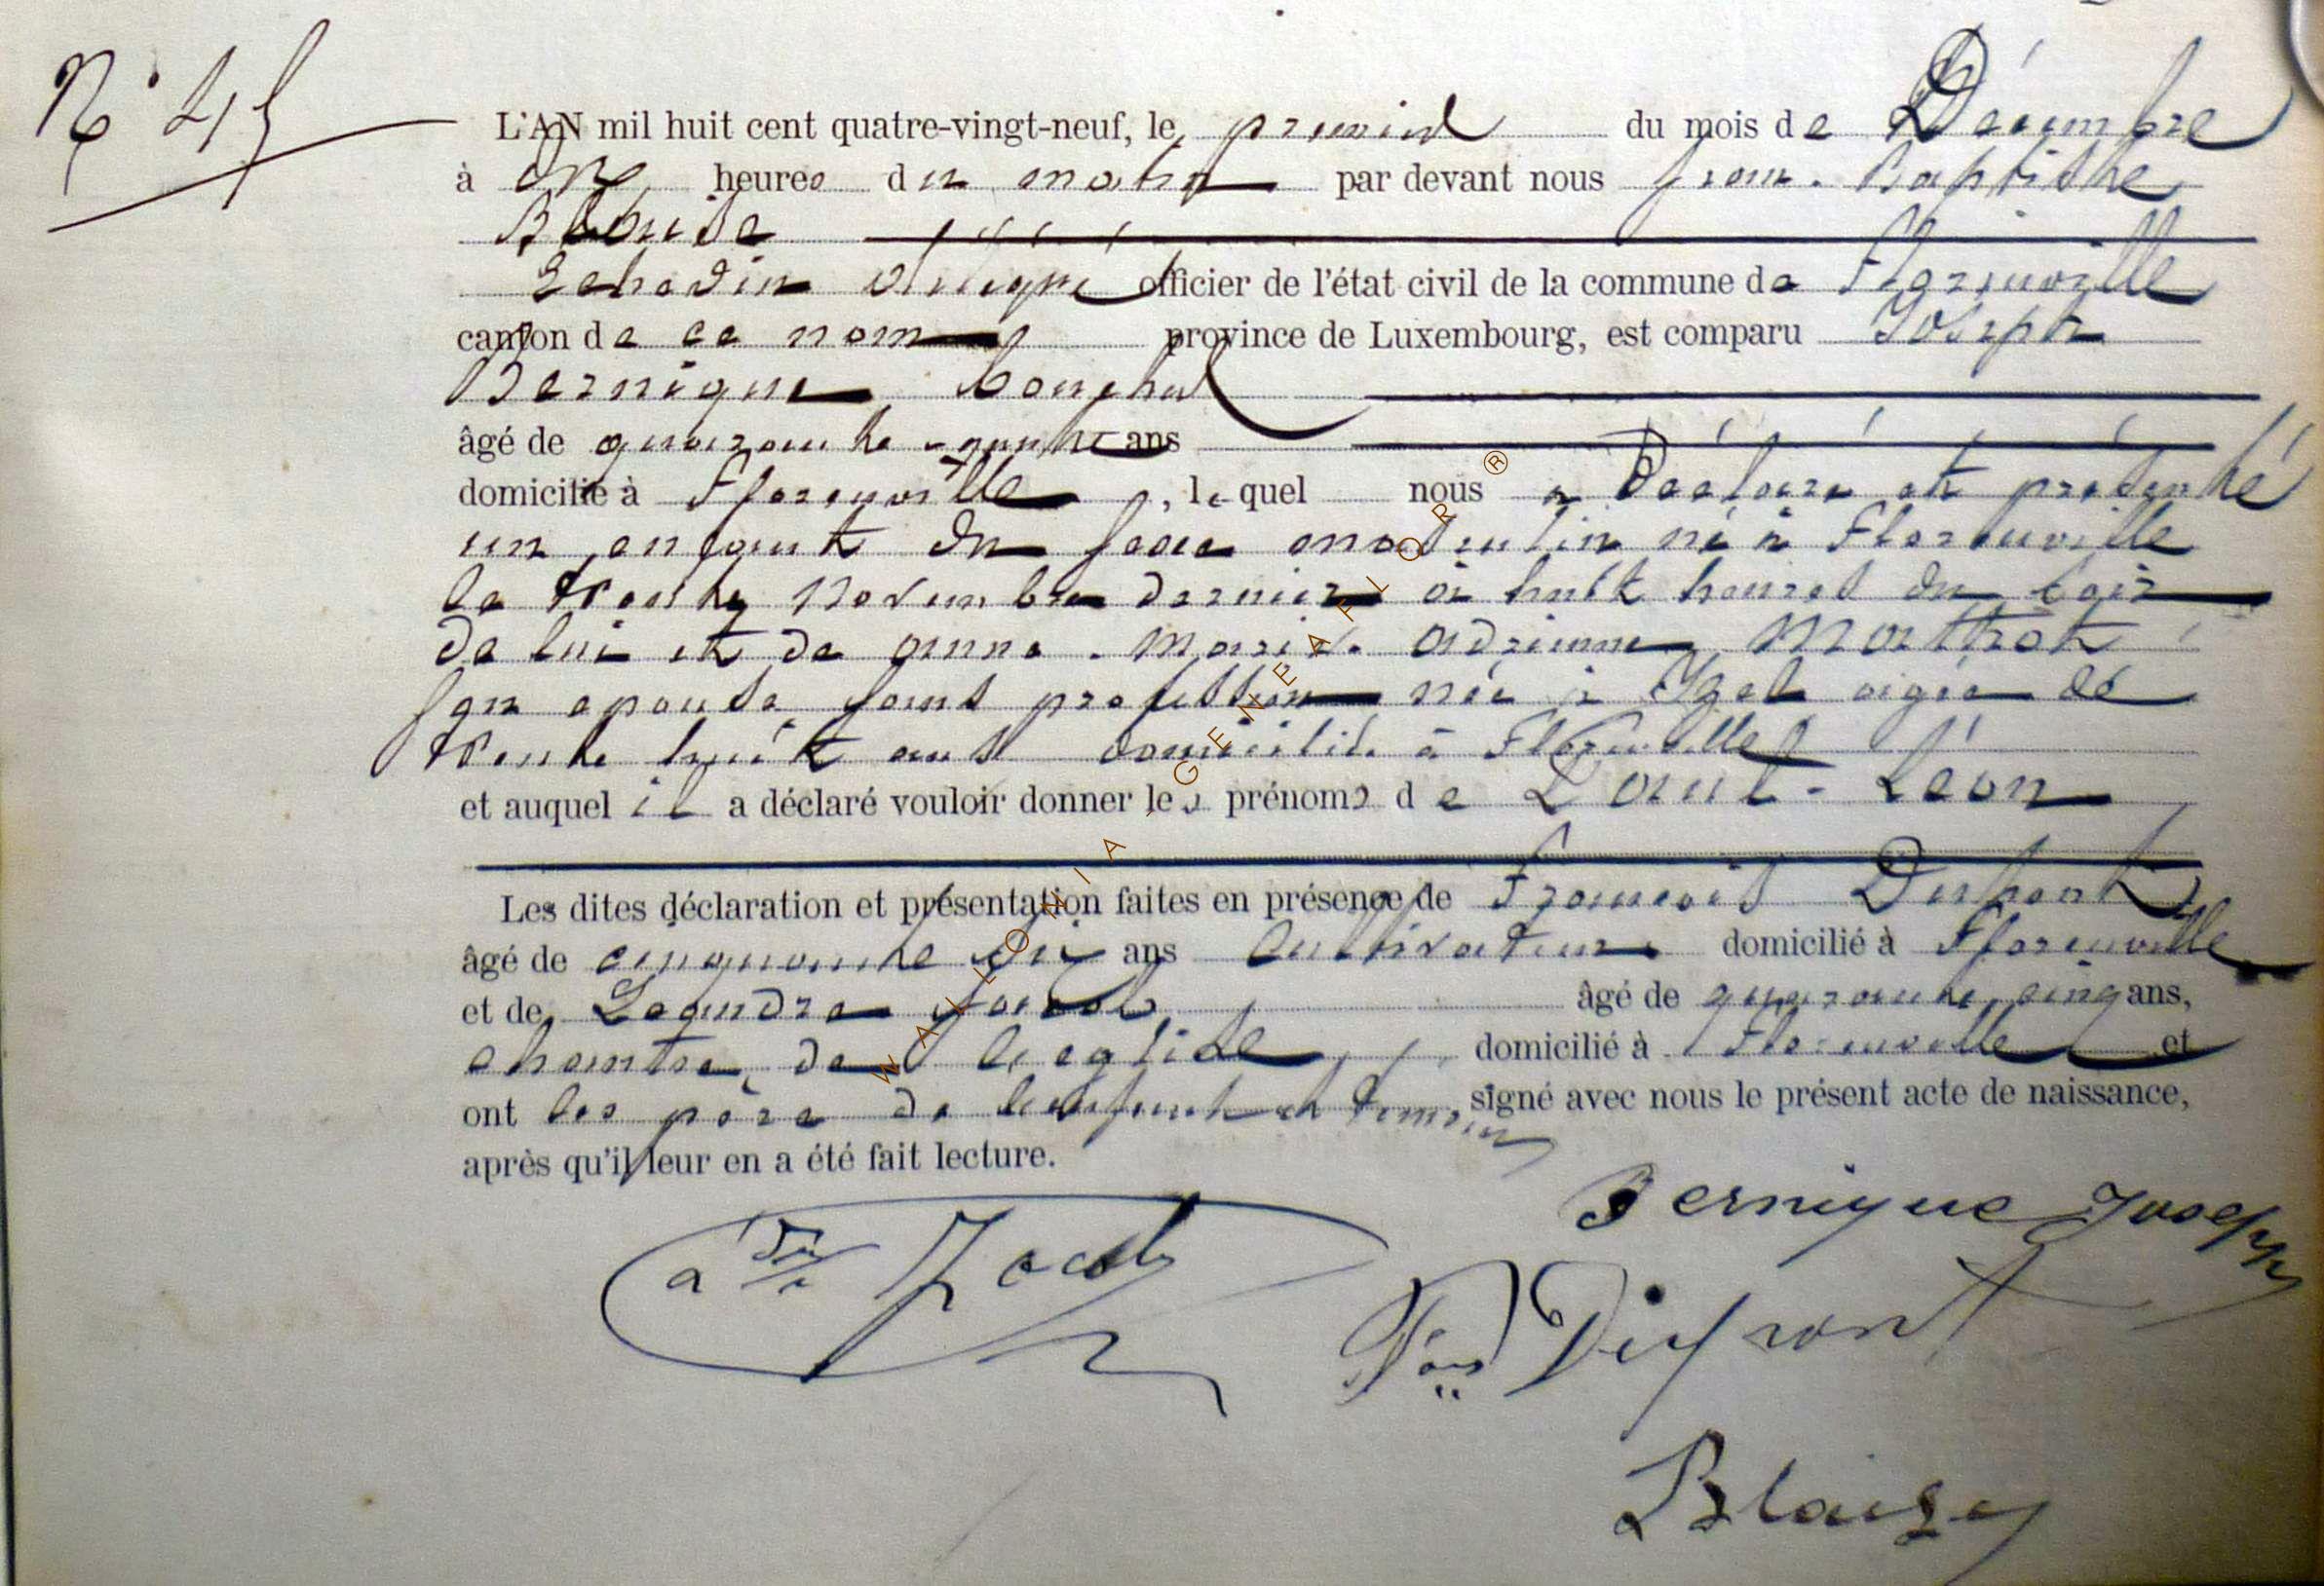 N° 45
L'AN mil huit cent quatre-vingt-neuf, le premier du mois de Décembre
à onze heures du matin par devant nous Jean-Baptiste
Blaise
Echevin délégué officier de l'état civil de la commune de Florenville
canton de ce nom province de Luxembourg, est comparu Joseph
Bernique
âgé de quarante ans
domicilié à Florenville, le quel nous a déclaré et présenté
un enfant du sexe masculin né à Florenville
le trente Novembre dernier à huit heures du soir
de lui et de Anne-Marie-Adrienne Mathot
son epouse sans profession née à Izel agée de
trente huit ans domicilié à Florenville
et auquel il a déclaré vouloir donner les prénoms de Paul-Léon
Les dites déclaration et présentation faites en présence de François Dupont
âgé de cinquante six ans Cultivateur domicilié à Florenville
et de Leandre Jacob âgé de quarante cinq ans,
chantre de l'eglise domicilié à Florenville et
ont les père de l'enfant et temoins signé avec nous le présent acte de naissance,
après qu'il leur en a été fait lecture.
Bernique Joseph
Jacob
Dupont
Blaise
WALLONIA | GENEAFLOR ®